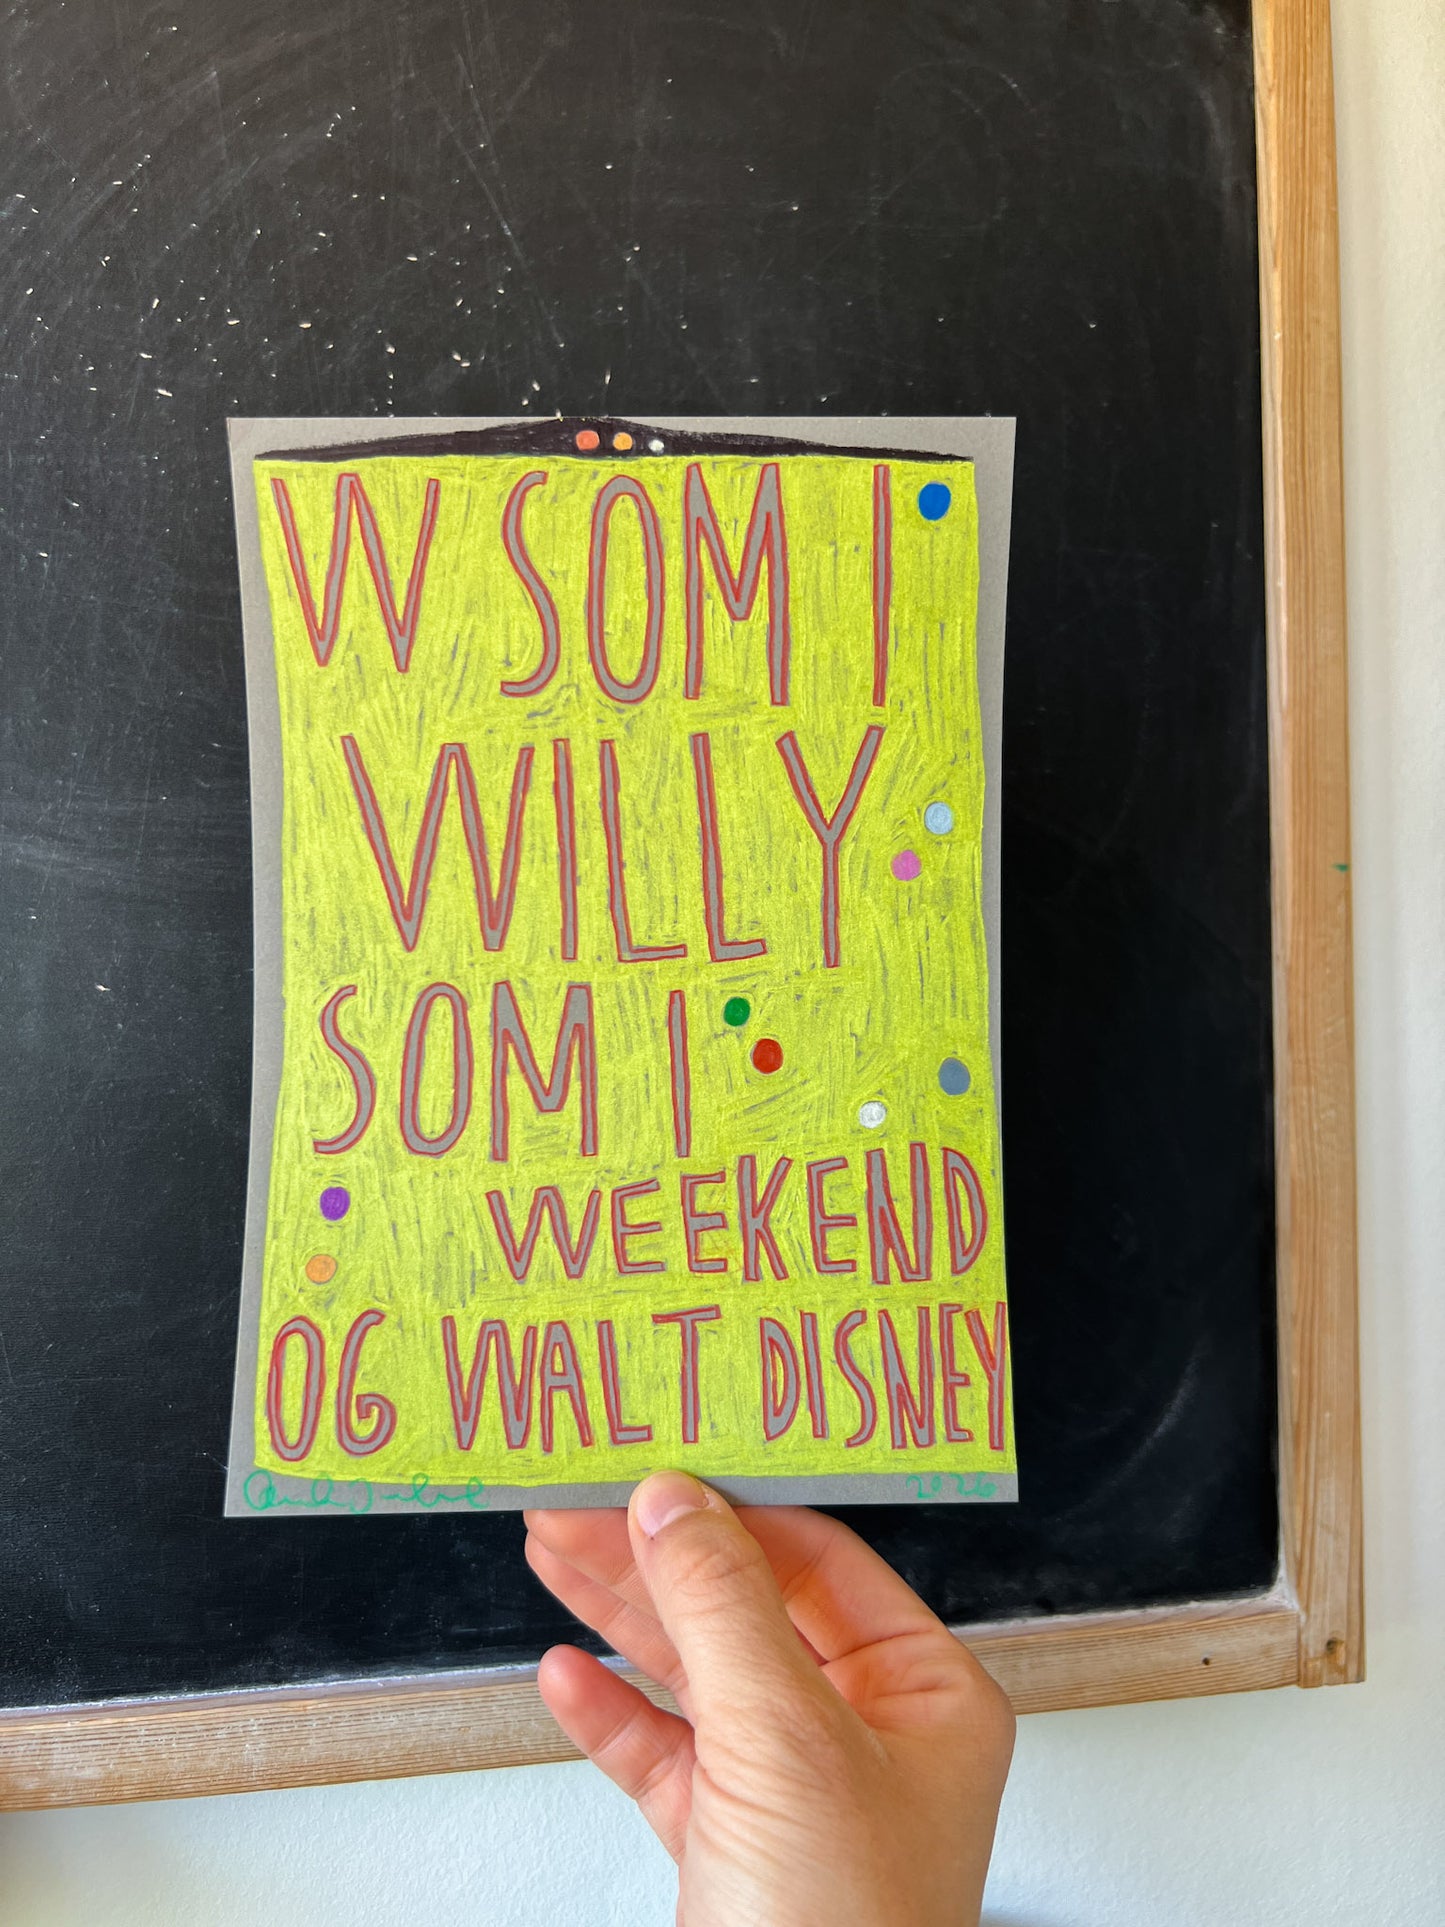 W SOM I
WILLY
SOM I
WEEKEND
OG WALT DISNEY
2026